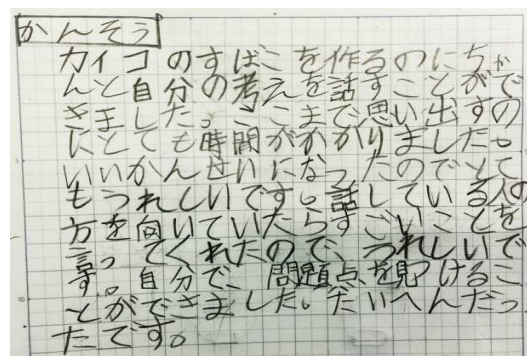 かんそう
カイコのすばこを作るのにちゃ
んと自分の考えを話すことがで
きました。ここまで思い出すの
にとても時間がかかりました。
いいかんせいになったのでとて
もうれしいです。話している人の
方を向いていたらすごいことを
言ってくれたので、うれしいで
す。自分で、問題点を見つけるこ
とができました。だいへんだっ
たです。